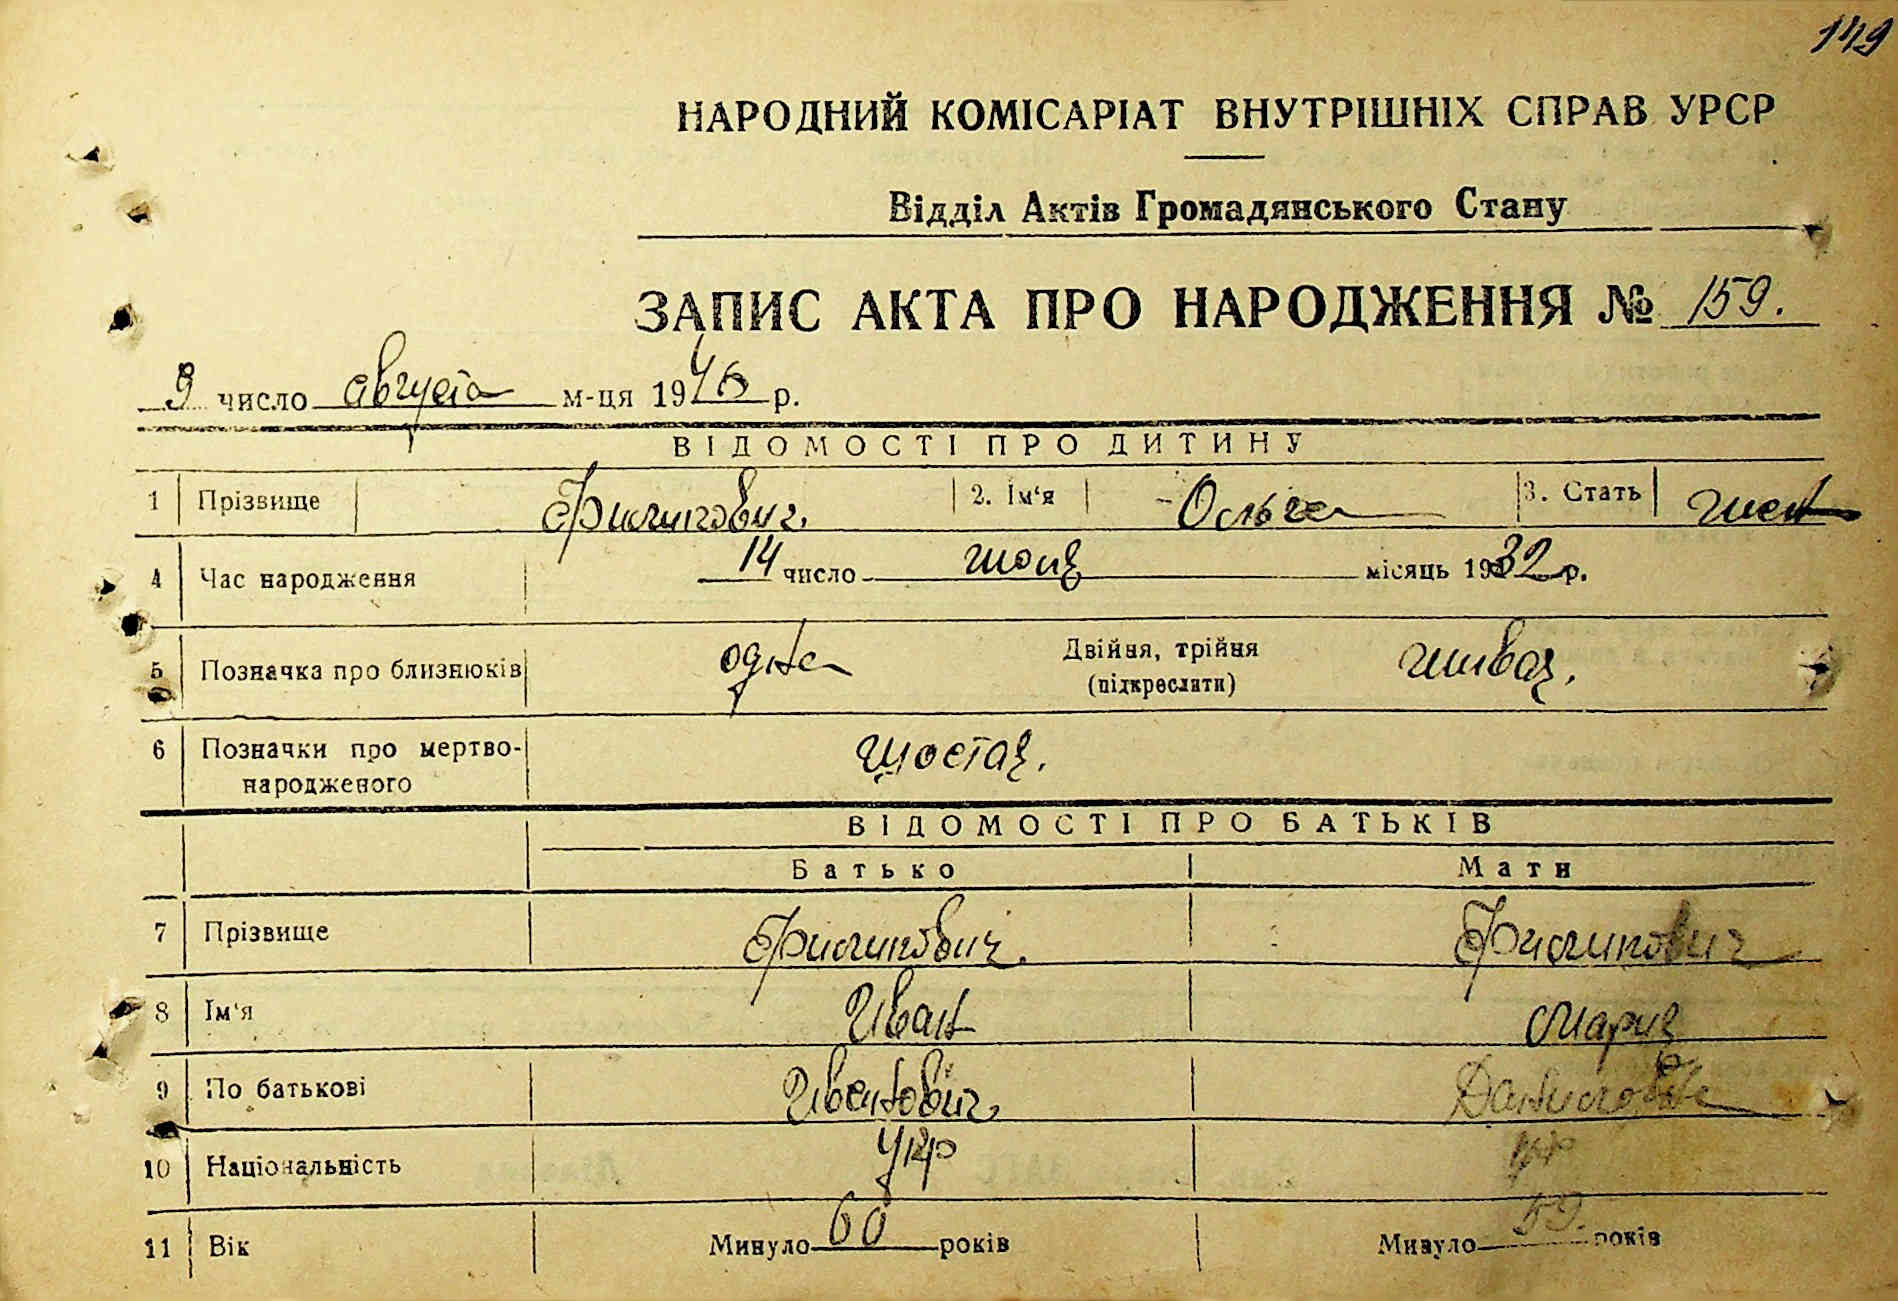 149
НАРОДНИЙ КОМІСАРІАТ ВНУТРІШНІХ СПРАВ УРСР
Відділ Актів Громадянського Стану
ЗАПИС АКТА ПРО НАРОДЖЕННЯ № 159.
9 число августа м-ця 1946 р.
ВІДОМОСТІ ПРО ДИТИНУ
1 Прізвище Филипович. 2. Ім'я Ольга 3. Стать жен
4 Час народження 14 число июня місяць 1932 р.
5 Позначка про близнюків одна Двійня, трійня живая.
(підкреслити)
6 Позначки про мертво- шостая.
народженого
ВІДОМОСТІ ПРО БАТЬКІВ
Батько Мати
7 Прізвище Филипович. Филипович
8 Ім'я Иван Мария
9 По батькові Иванович. Даниловна
10 Національність укр укр
11 Вік Минуло 60 років Минуло 59. років